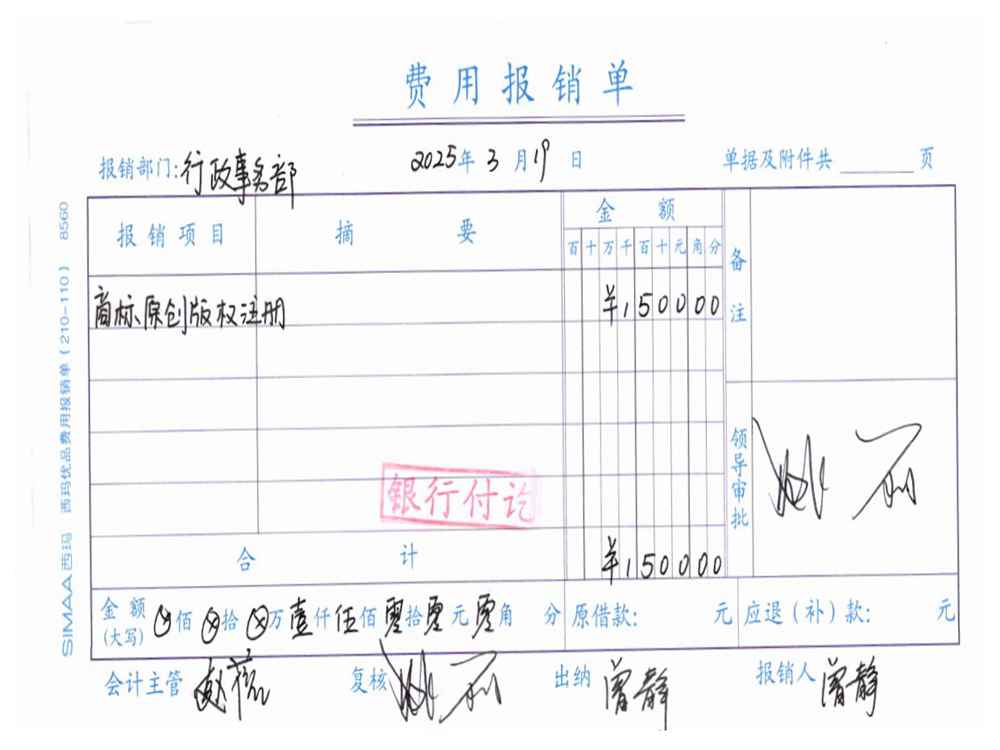 费用报销单
报销部门:行政事务部 2025年3月19日 单据及附件共 页
报销项目 摘要 金额 备注
百十万千百十元角分
商标原创版权注册 ¥150000
领导审批
银行付讫
合计 ¥150000
金额(大写) ⊗佰⊗拾⊗万壹仟伍佰零拾零元零角 分 原借款: 元 应退(补)款: 元
会计主管 复核 出纳 曾静 报销人 曾静
SIMAA西玛 西玛优品费用报销单(210-110) 8560